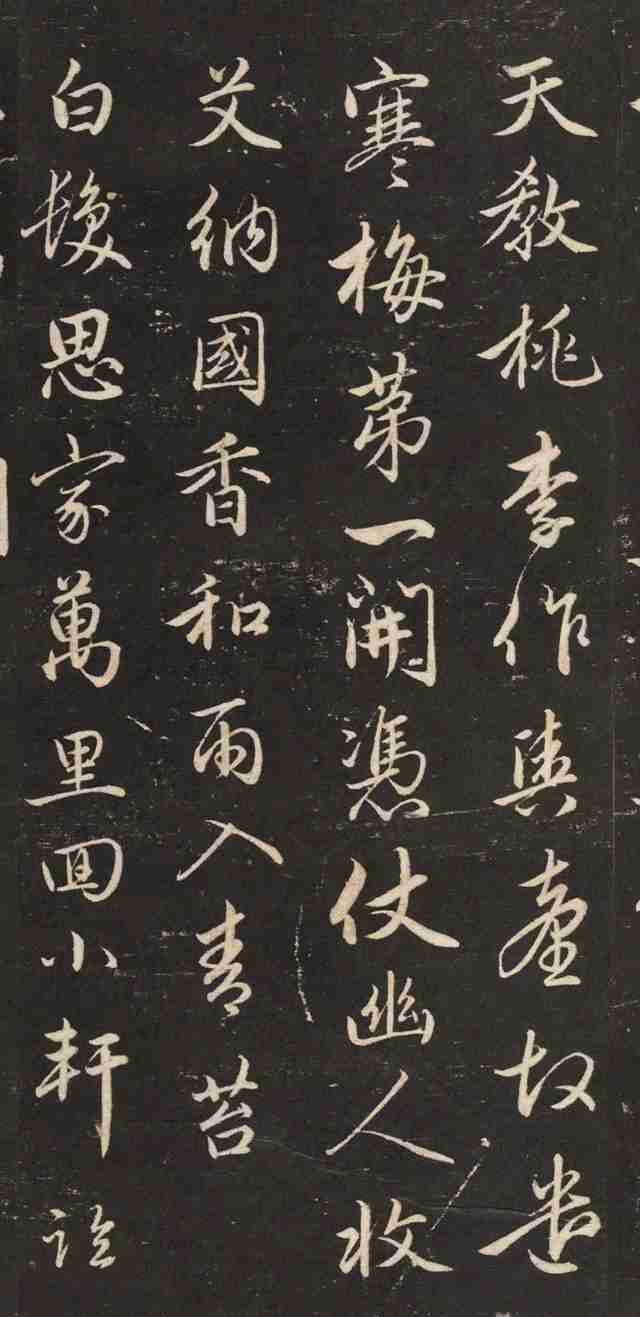 天教桃李作輿臺故遣
寒梅第一開憑仗幽人收
艾納國香和雨入青苔
白髮思家萬里回小軒臨